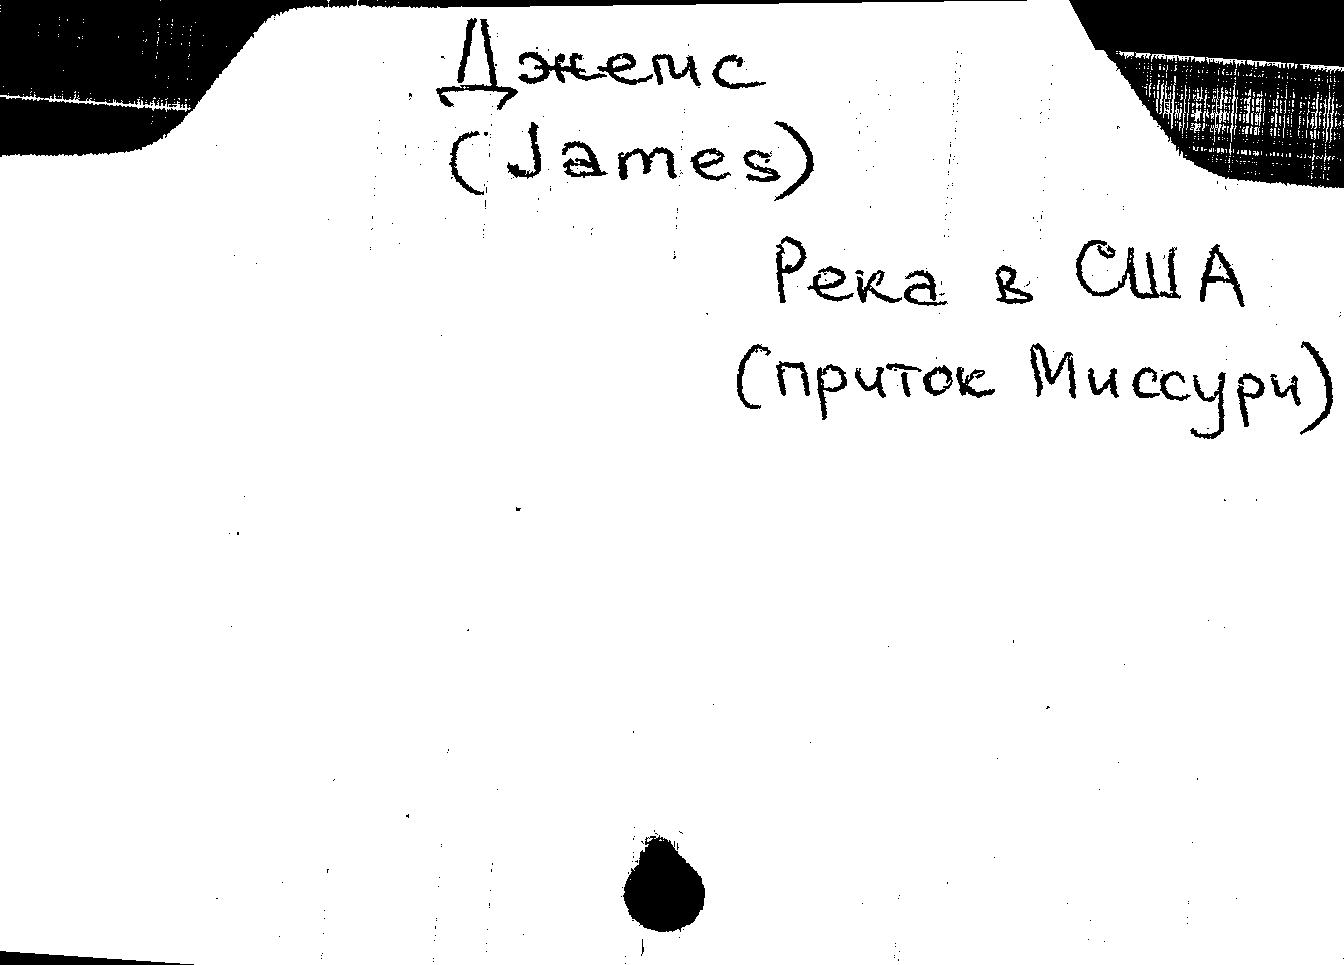 Джемс
(James)
Река в США
(приток Миссури)